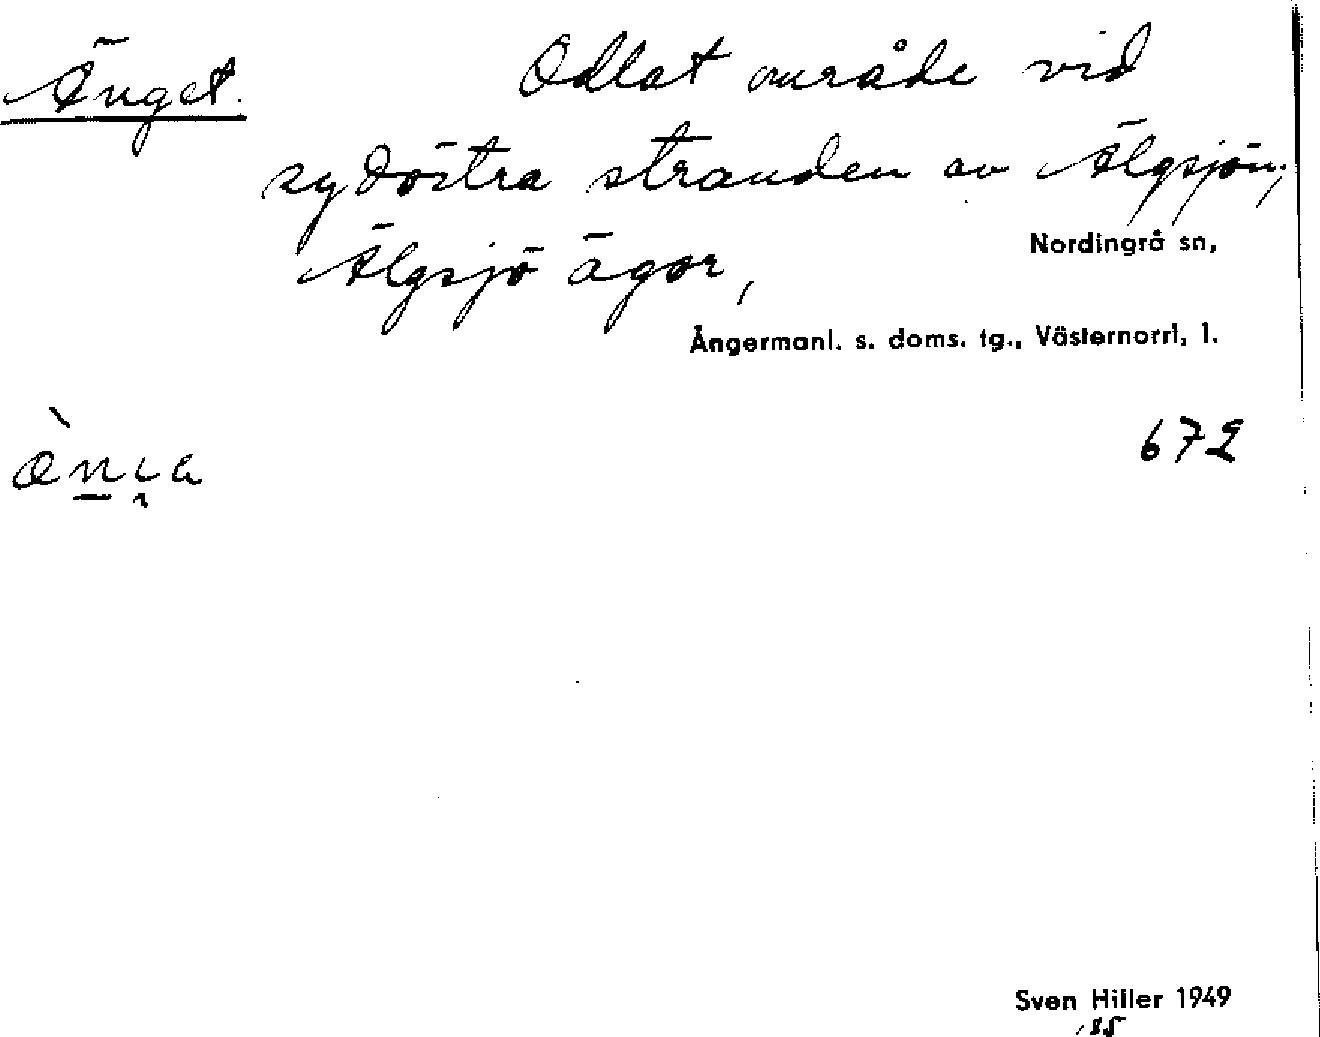 Änget. Odlat område vid
sydöstra stranden av Älgsjön,
Älgsjö ägor,
Nordingrå sn,
Ångermanl. s. doms. tg., Västernorrl. l.
672
Sven Hiller 1949